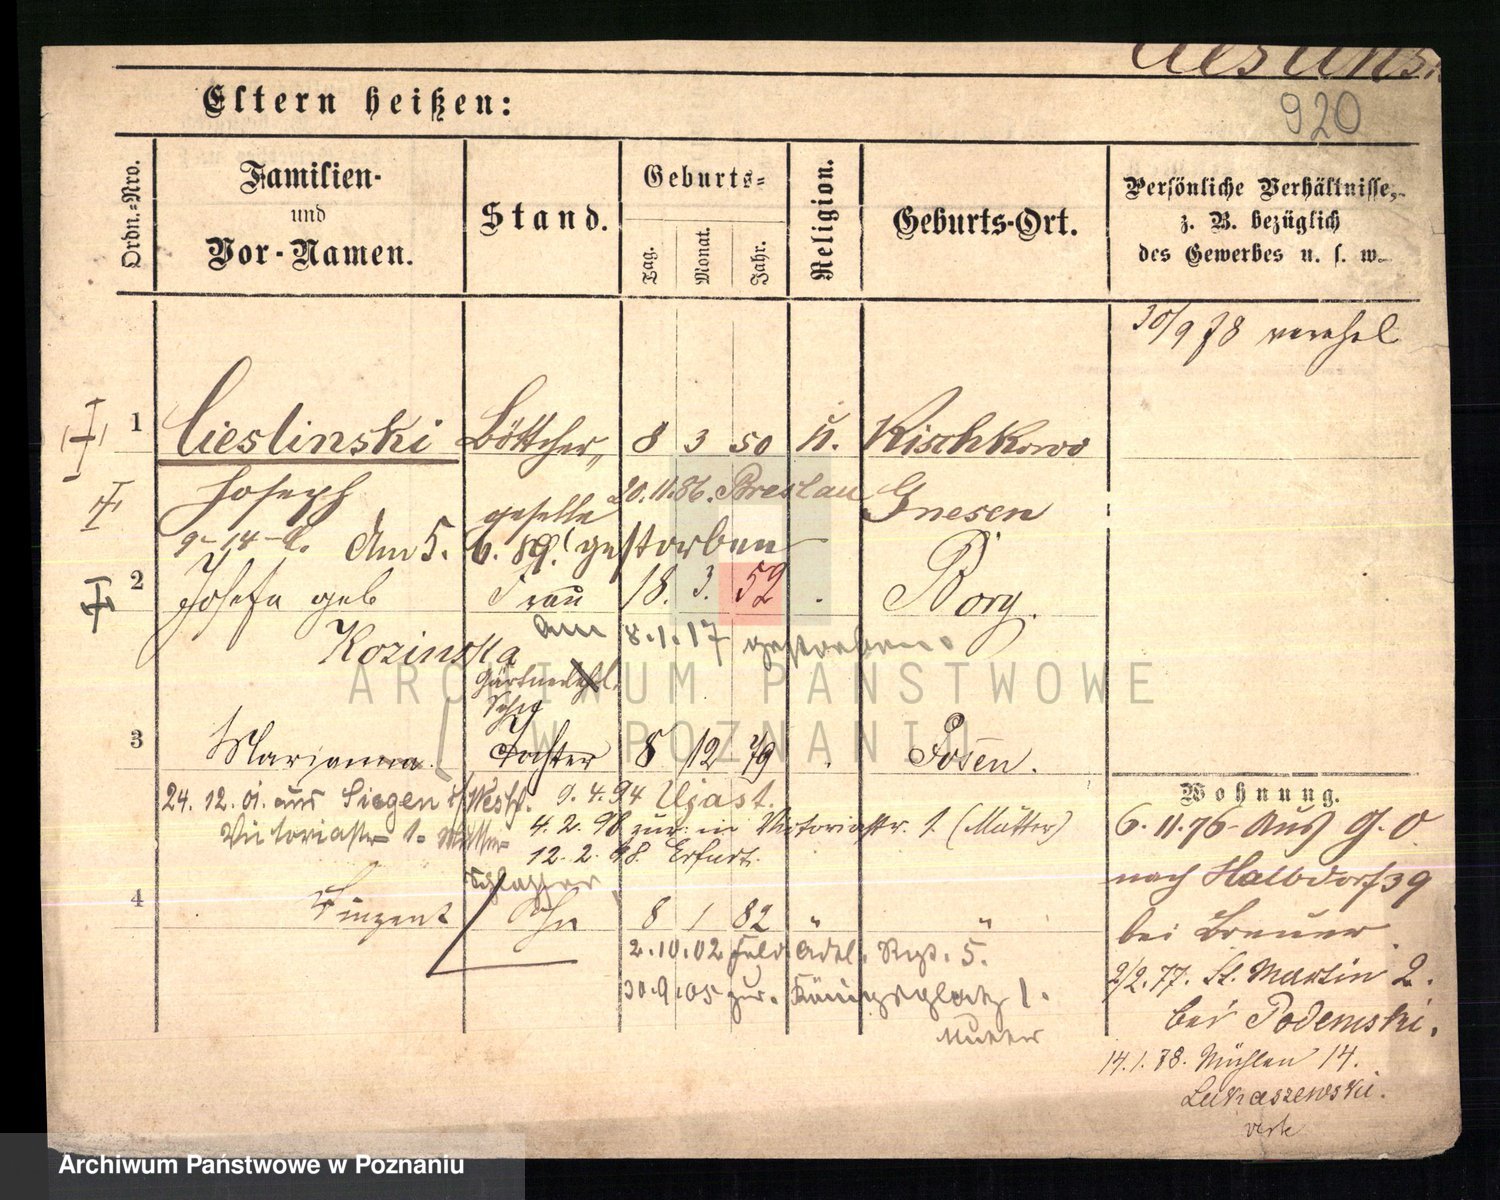 Cieslinski
920
Eltern heißen:
Ordn.-Nro.
Familien- und Vor-Namen.
Stand.
Geburts-
Tag.
Monat.
Jahr.
Religion.
Geburts-Ort.
Persönliche Verhältnisse, z. B. bezüglich des Gewerbes u. s. w.
30/9 78 verehel
1 Cieslinski Böttcher 8 3 50 k. Kischkowo
Joseph geselle 20.11.86. Breslau Gnesen
Am 5. 6. 89. gestorben
2 Josefa geb Frau 18. 3. 52 Borg.
Kozinska am 8.1.17 gestorben.
Gärtner
3 Marianna Tochter 8 12 79 Posen.
24. 12. 01. aus Siegen i/Westf. 9. 4. 94 Ujast.
Victoriastr 1. Mutter 4. 2. 98 zur. in Victoriastr. 1. (Mutter)
12. 2. 98. Erfurt.
Schlosser
4 Vinzent Sohn 8 1 82 " "
2.10.02 Feld Artl. Rgt. 5.
30.9.05 zur. Königsplatz 1.
Mutter
Wohnung.
6. 11. 76 Aus G. O
nach Halbdorf 39
bei Breuer
2/2. 77. St. Martin 2.
bei Podemski.
14. 1. 78. Mühlen 14.
Lukaszewski.
ARCHIWUM PAŃSTWOWE
W POZNANIU
Archiwum Państwowe w Poznaniu